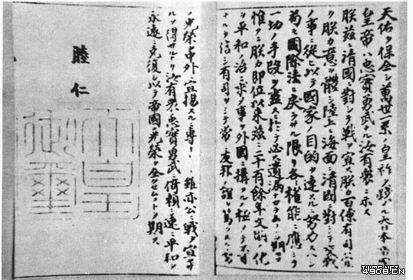 天佑ヲ保全シ萬世一系ノ皇祚ヲ踐メル大日本帝國
皇帝ハ忠實勇武ナル汝有衆ニ示ス
朕茲ニ清國ニ對シテ戰ヲ宣ス朕カ百僚有司ハ宜ク
朕カ意ヲ體シ陸上ニ海面ニ清國ニ對シテ交戰
ノ事ニ從ヒ以テ國家ノ目的ヲ達スルニ努力スヘシ
苟モ國際法ニ戻ラサル限リ各々權能ニ應シテ
一切ノ手段ヲ盡スニ於テ必ス遺漏ナカラムコトヲ期セヨ
惟フニ朕カ即位以來茲ニ二十有餘年文明ノ化
ヲ平和ノ治ニ求メ事ヲ外國ニ構フルノ極メテ不可
ナルヲ信シ有司ヲシテ常ニ友邦ノ誼ヲ篤クスルニ
ノ光榮ヲ中外ニ宣揚スルニ專ナリト雖亦公ニ戰ヲ宣セサ
ルヲ得サルナリ汝有衆ノ忠實勇武ニ倚頼シ速ニ平和ヲ
永遠ニ克復シ以テ帝國ノ光榮ヲ全クセムコトヲ期ス
睦仁
天皇
御璽